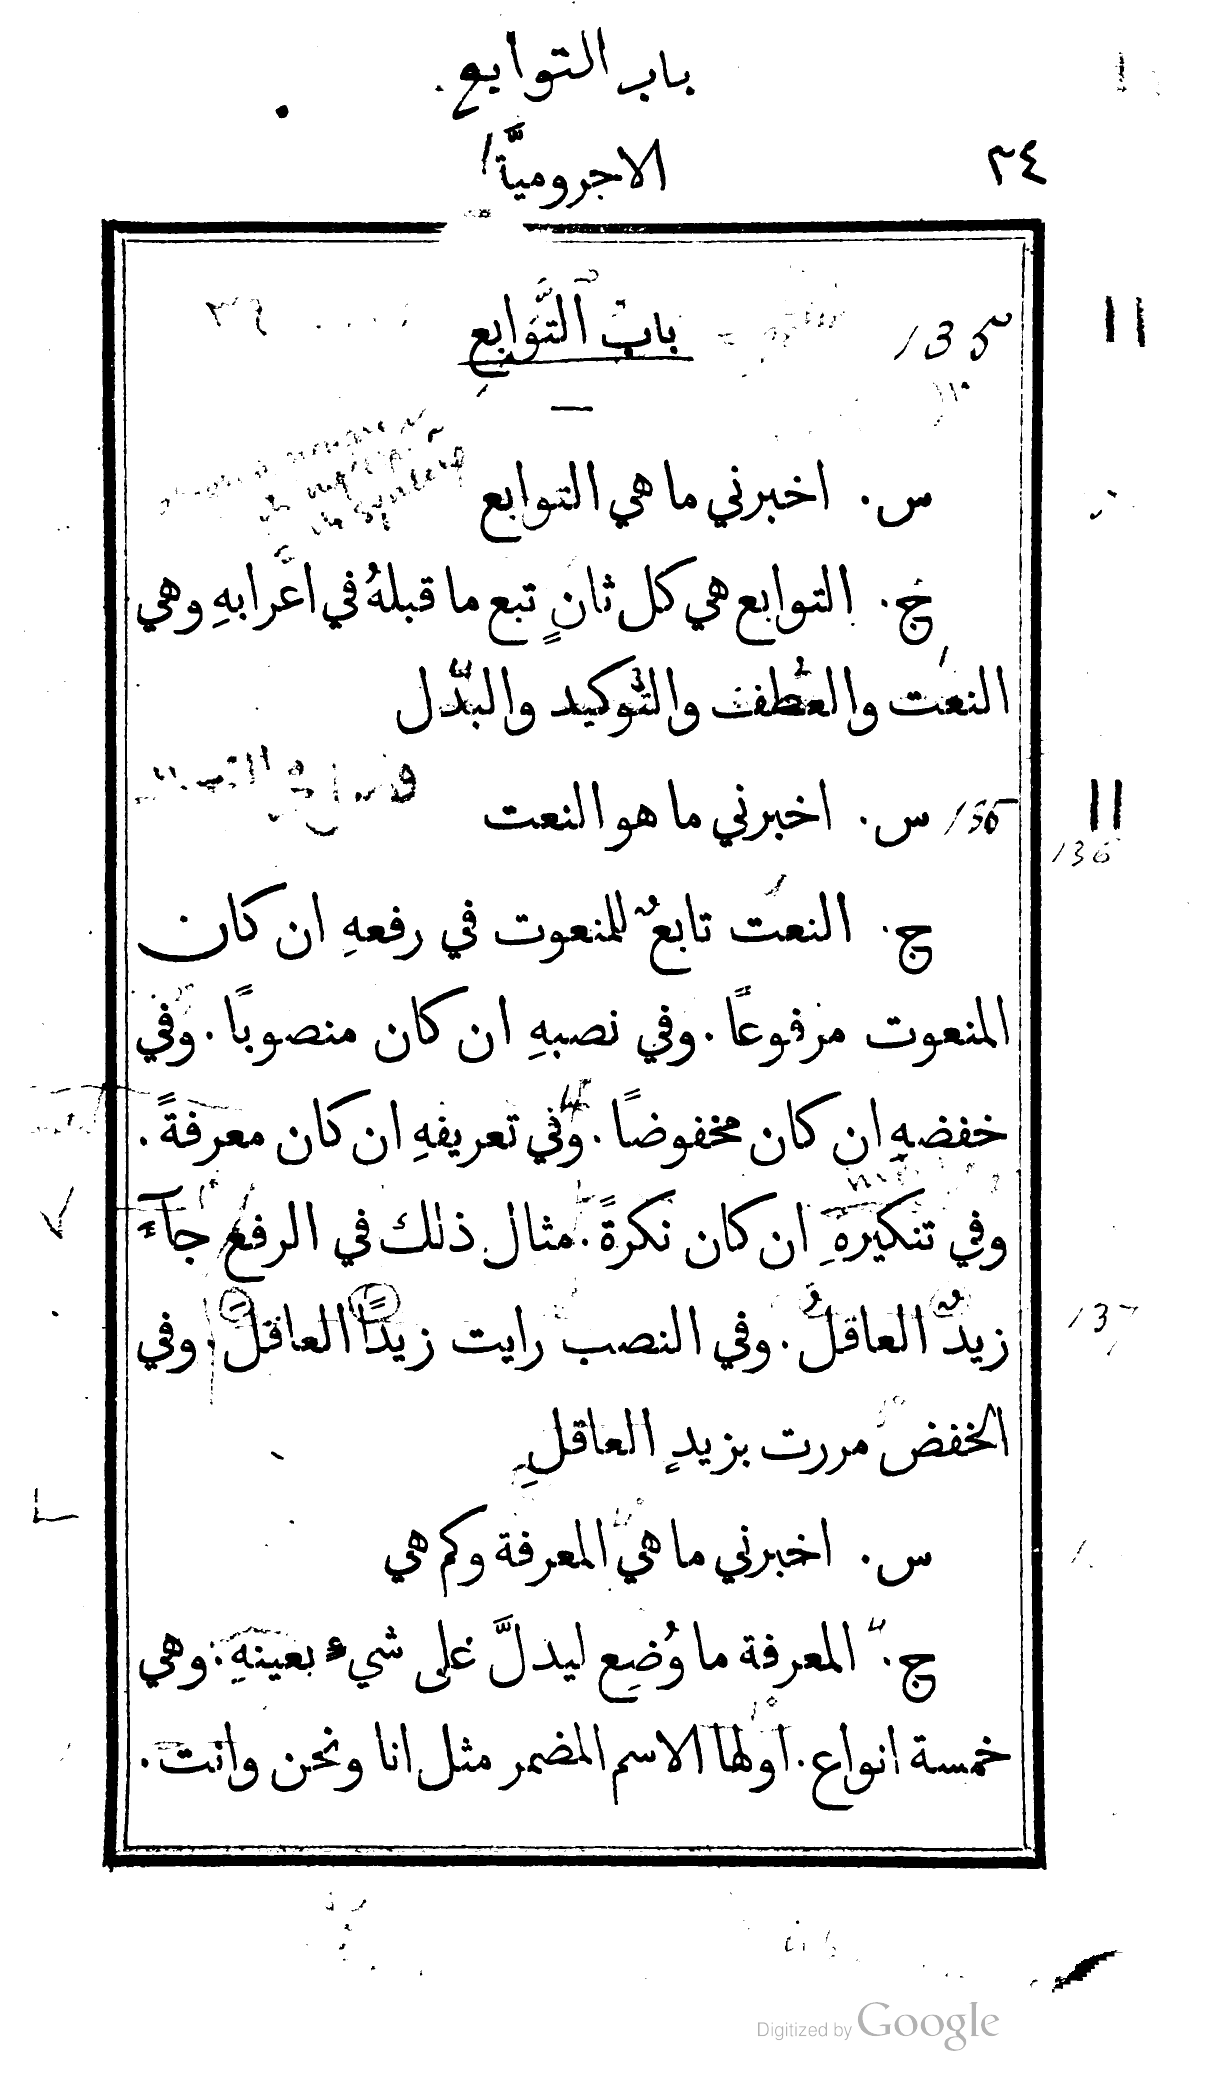 باب التوابع
الاجروميَّة
٣٤
135
باب التَّوَابع
س. اخبرني ما هي التوابع
ج. التوابع هي كل ثانٍ تبع ما قبلهُ في اعرابهِ وهي
النعت والعطف والتوكيد والبدل
س. اخبرني ما هو النعت
136
136
ج. النعت تابعٌ للمنعوت في رفعهِ ان كان
المنعوت مرفوعًا. وفي نصبهِ ان كان منصوبًا. وفي
خفضهِ ان كان مخفوضًا. وفي تعريفهِ ان كان معرفةً.
وفي تنكيرهِ ان كان نكرةً. مثال ذلك في الرفع جآءَ
زيدٌ العاقلُ. وفي النصب رايت زيدًا العاقلَ. وفي
137
الخفض مررت بزيدٍ العاقلِ
س. اخبرني ما هي المعرفة وكم هي
ج. المعرفة ما وُضِع ليدلَّ على شيءٍ بعينهِ. وهي
خمسة انواع. اولها الاسم المضمر مثل انا ونحن وانت.
Digitized by Google